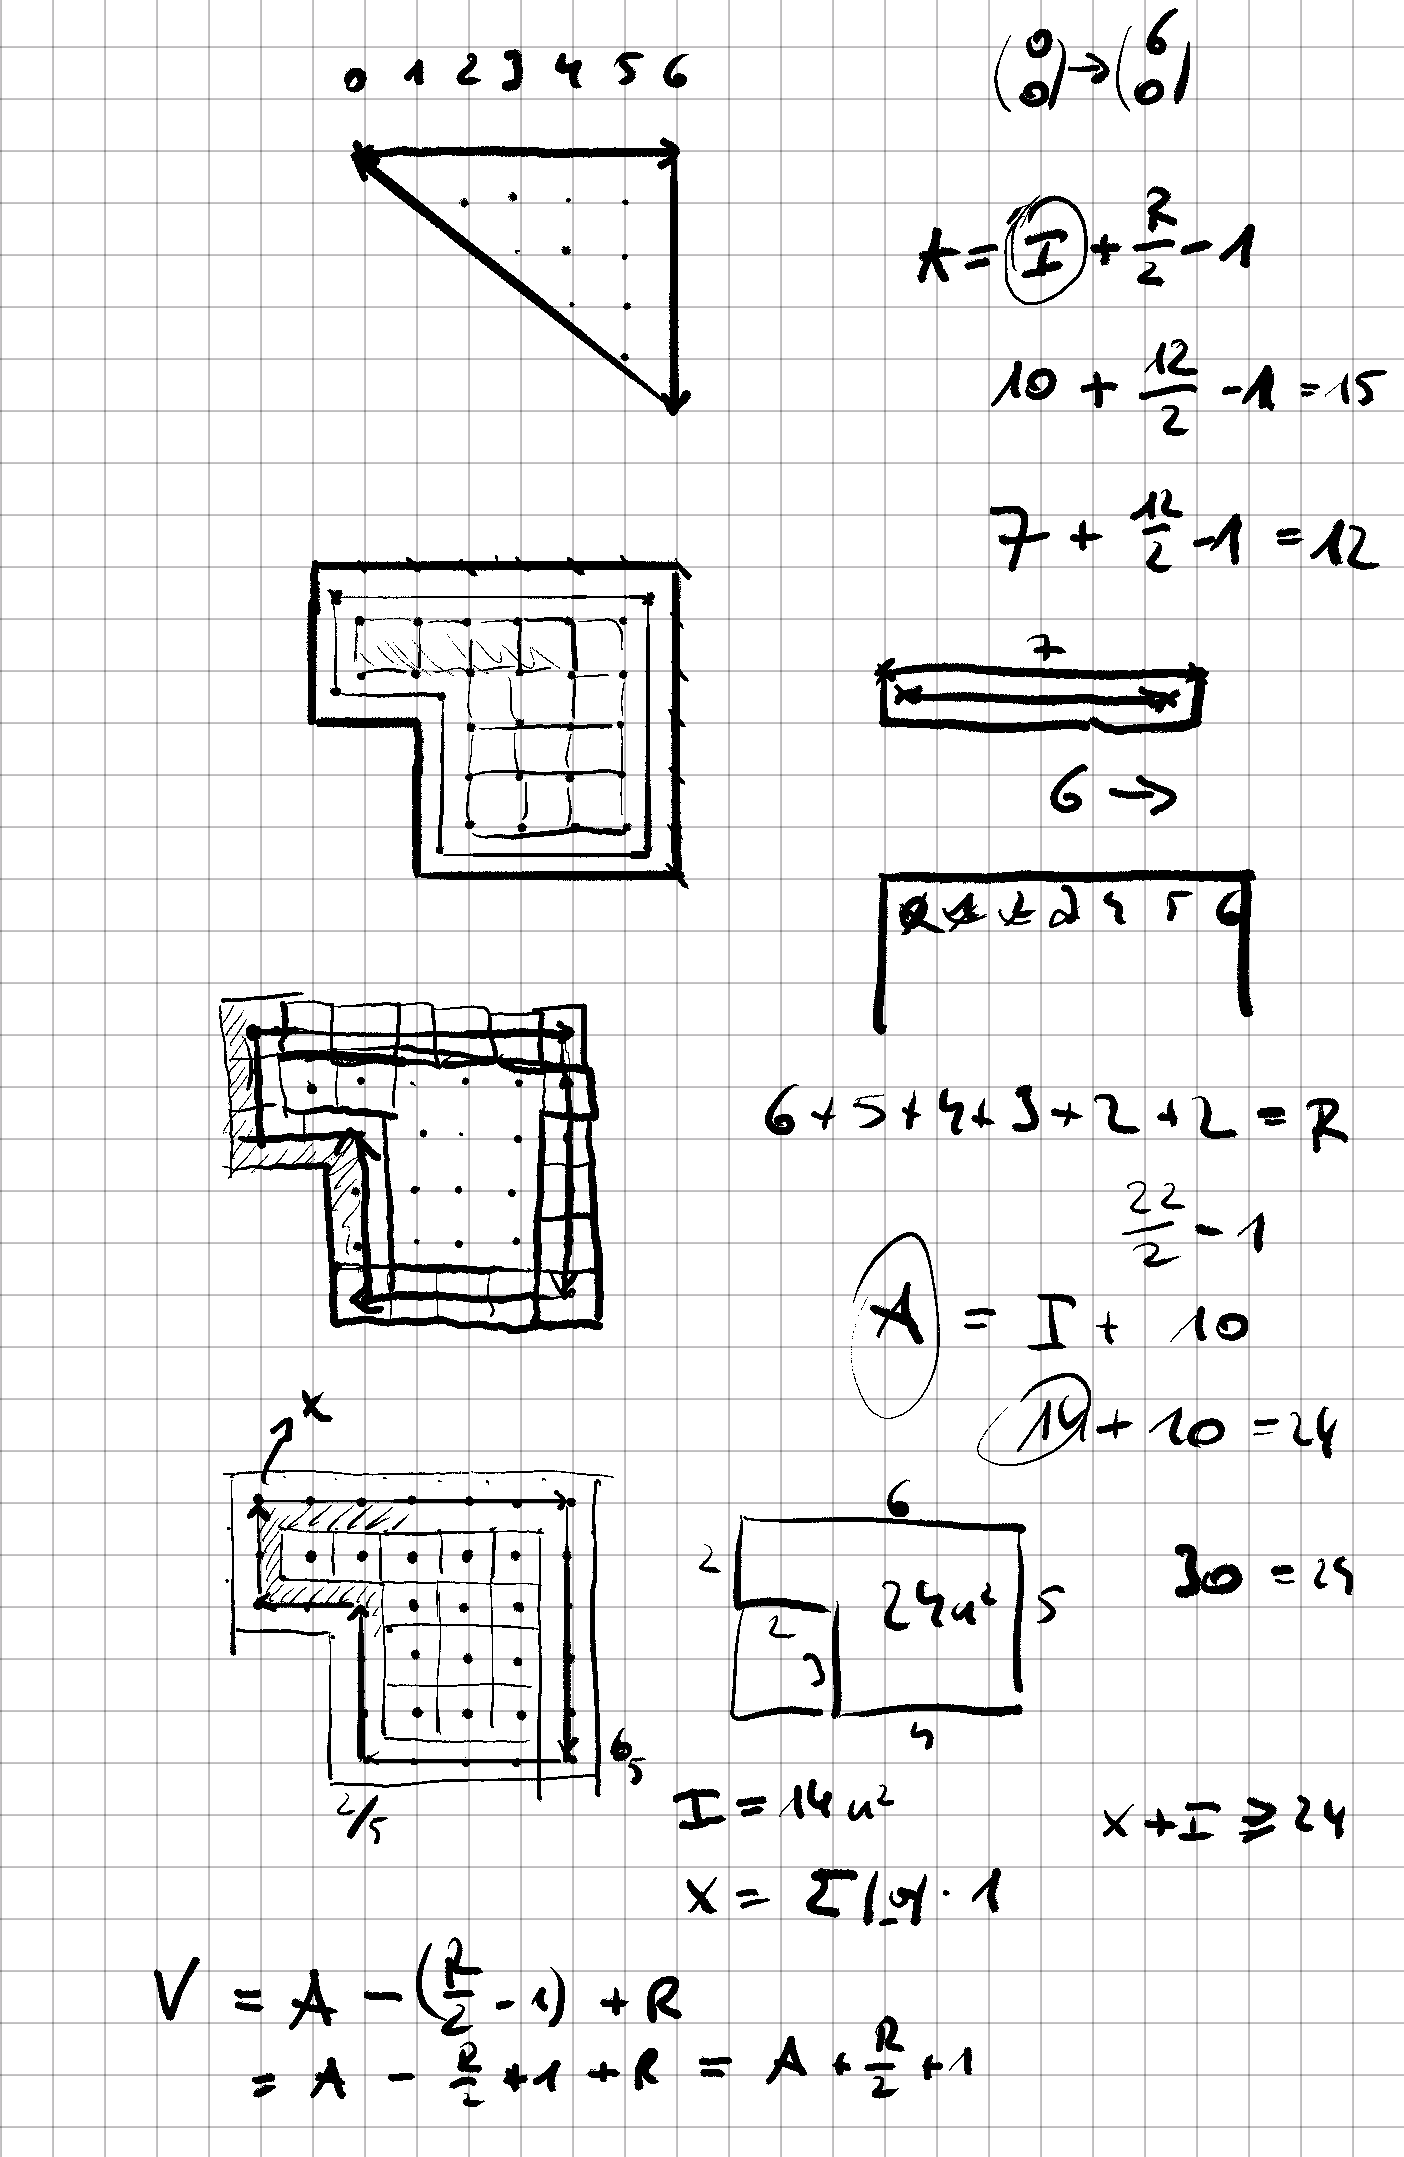 0 1 2 3 4 5 6
(0 0) → (6 0)
A = I + R/2 - 1
10 + 12/2 - 1 = 15
7 + 12/2 - 1 = 12
7
6 →
0 1 2 3 4 5 6
6 + 5 + 4 + 3 + 2 + 2 = R
22/2 - 1
A = I + 10
14 + 10 = 24
x
6
2
24u²
5
30 = 24
2
3
4
6/5
2/5
I = 14u²
x + I ≥ 24
V = A - (R/2 - 1) + R
= A - R/2 + 1 + R = A + R/2 + 1